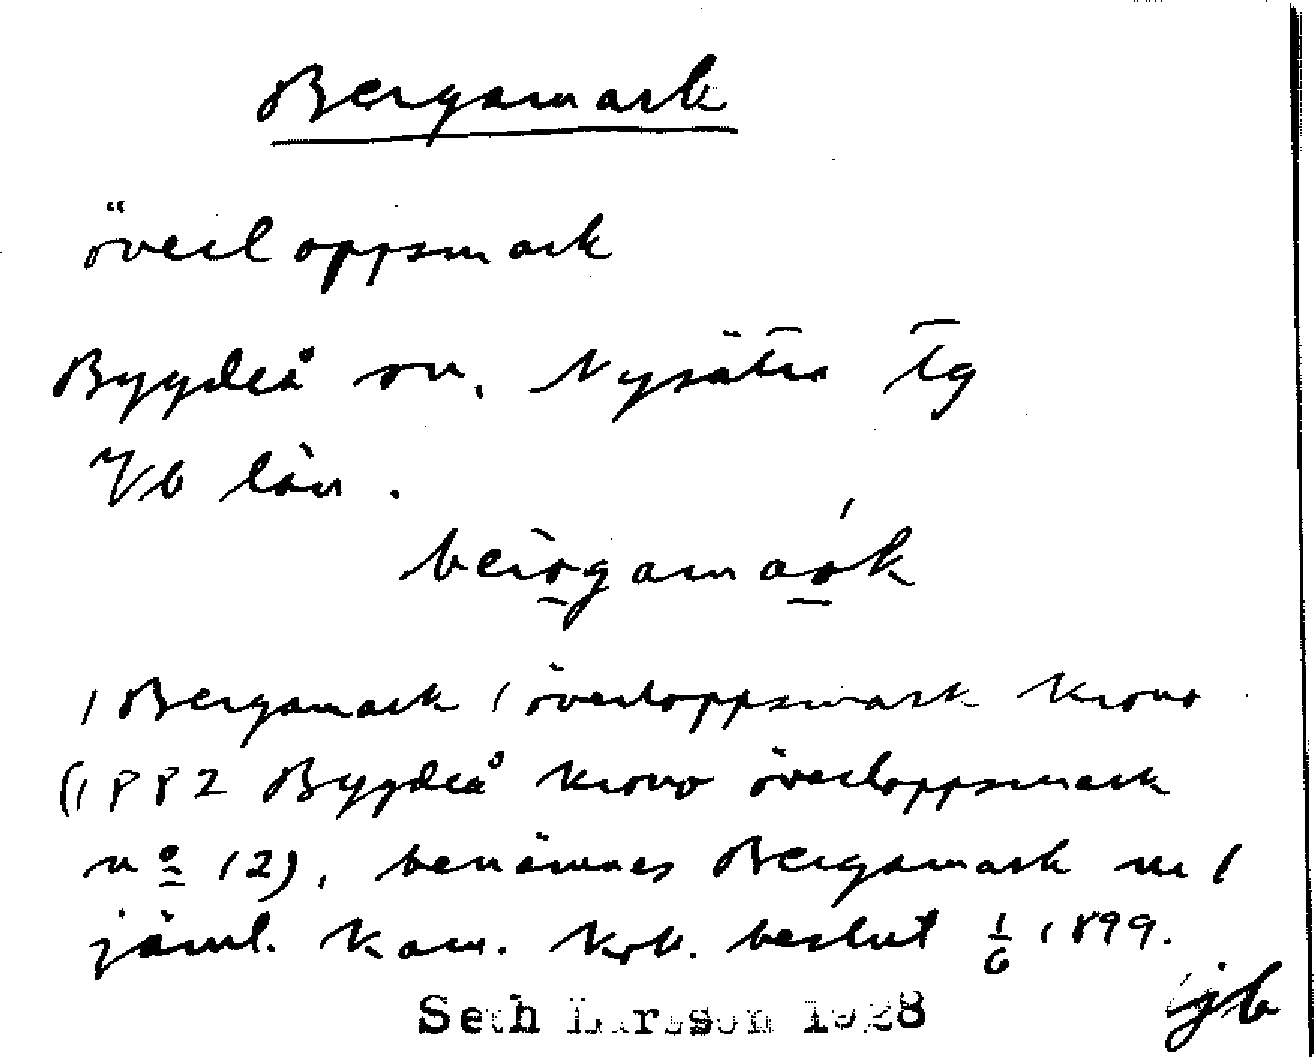 Bergamark
överloppsmark
Bygdeå sn. Nysätra tg
Vb län.
bergamark
1 Bergamark 1 överloppsmark krono
(1882 Bygdeå krono överloppsmark
nº 12), benämnes Bergamark nr 1
jäml. Kam. Koll. beslut 1/6 1899.
Seth Larsson 1928
jb